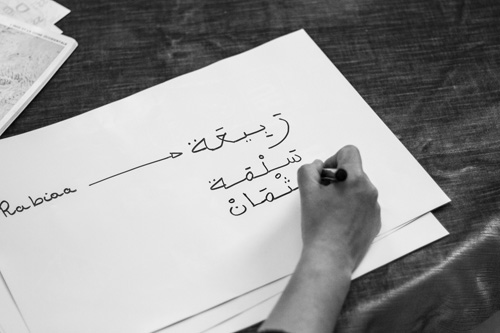 Rabiaa رَبيعَة
سَلْمَة
ثْمَانْ